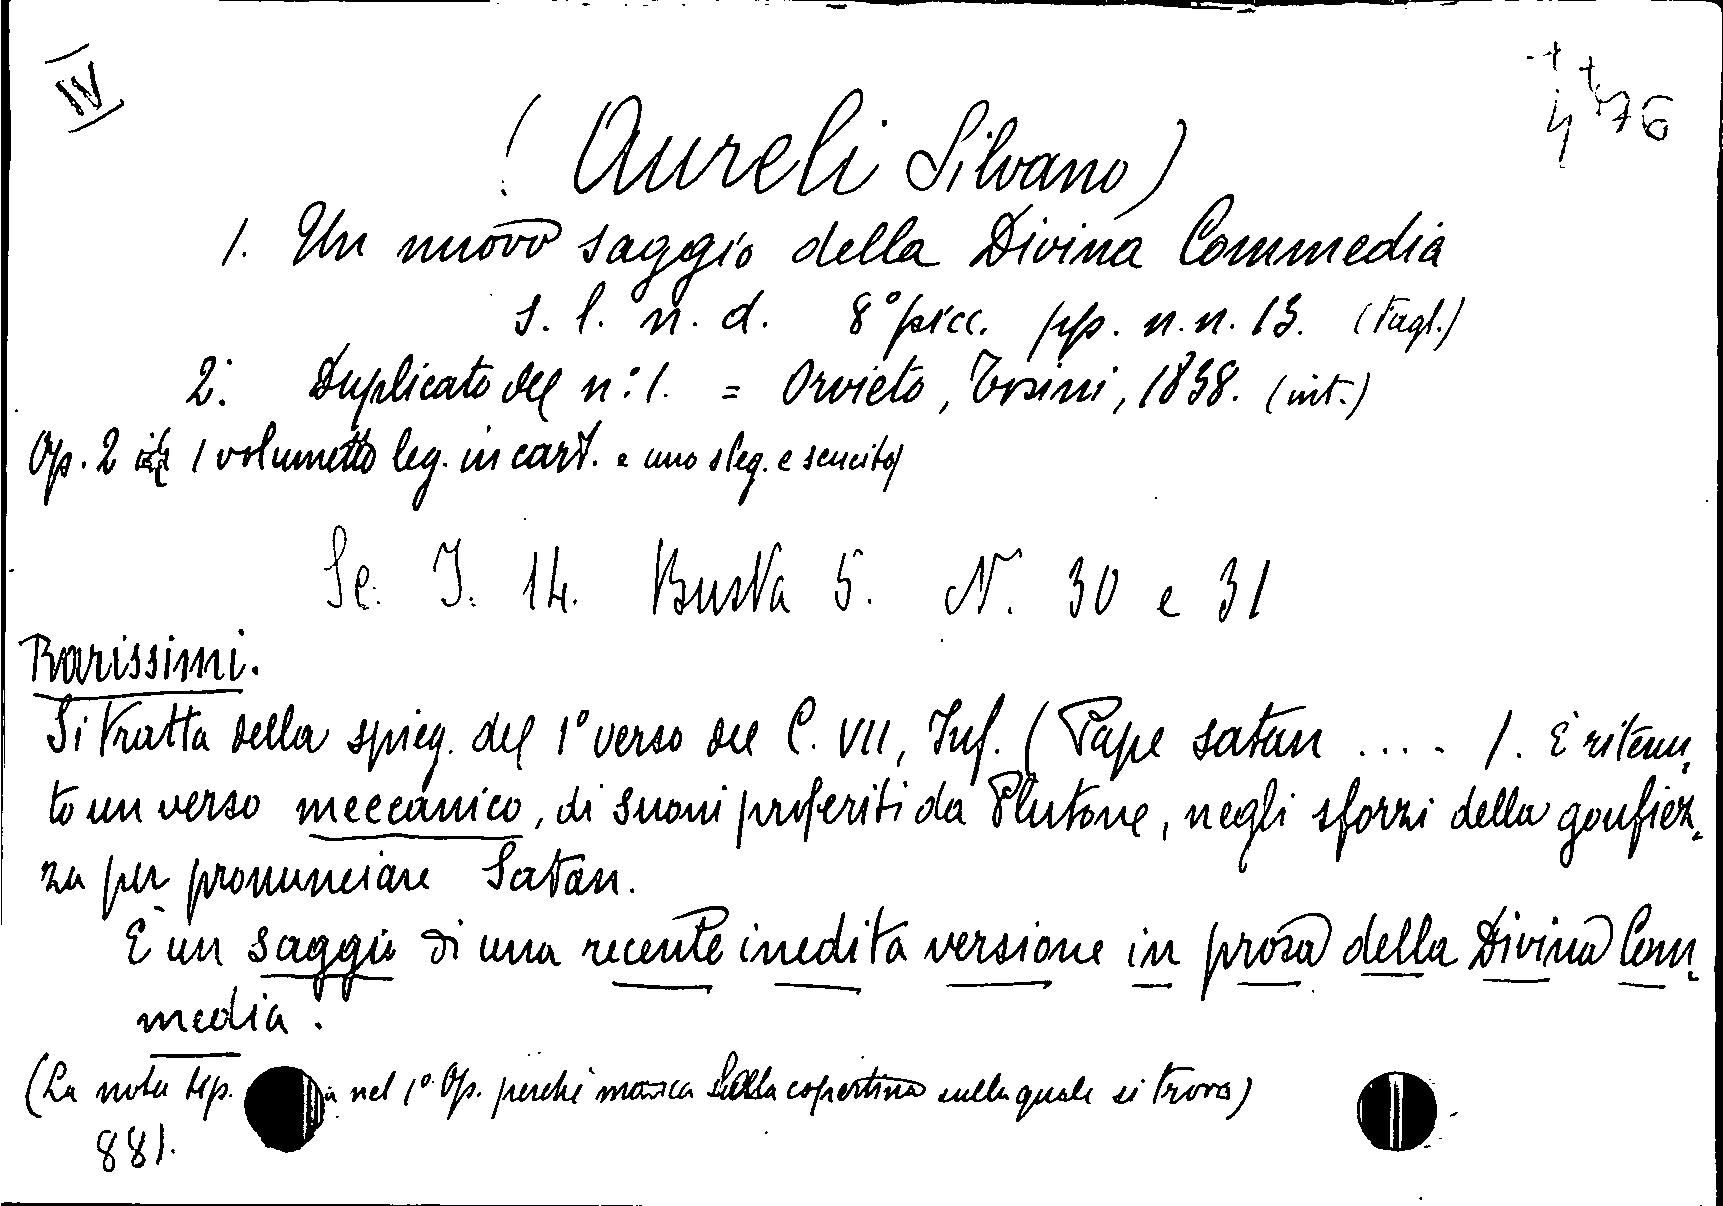 IV
4 76
(Aureli Silvano)
1. Un nuovo saggio della Divina Commedia
s. l. n. d. 8° picc. pp. n.n. 13. (tagl.)
2. Duplicato del n° 1. = Orvieto, Tosini, 1838. (int.)
Op. 2 1 volumetto leg. in cart. e uno sleg. e scucito)
Sc. I. 14. Busta 5. N. 30 e 31
Rarissimi.
Si tratta della spieg. del 1° verso del C. VII, Inf. (Pape satan .... ). È ritenu-
to un verso meccanico, di suoni proferiti da Plutone, negli sforzi della gonfiez-
za per pronunciare Satan.
È un saggio di una recente inedita versione in prosa della Divina Com-
media.
(La nota tip. nel 1° Op. perchè manca della copertina sulla quale si trova)
881.